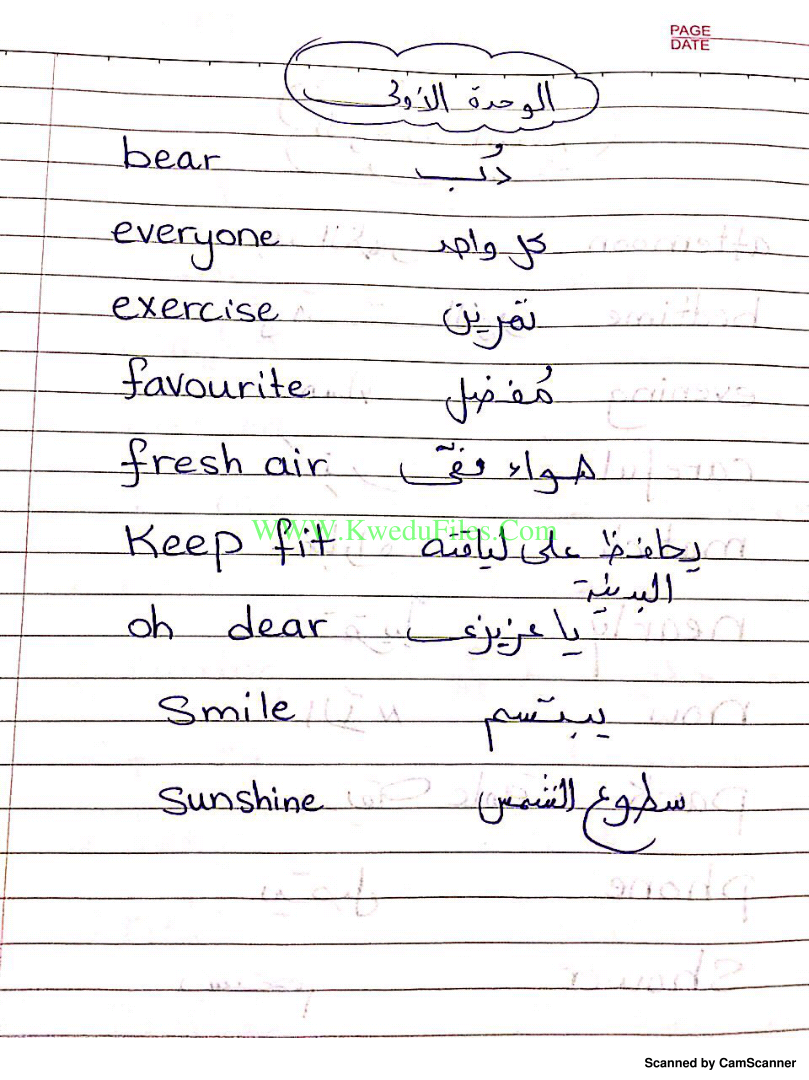 PAGE
DATE
الوحدة الأولى
bear دُب
everyone كل واحد
exercise تمرين
favourite مُفضل
fresh air هواء نقىّ
WWW.KweduFiles.Com
Keep fit يحافظ على لياقته
البدنية
oh dear يا عزيزى
Smile يبتسم
sunshine سطوع الشمس
Scanned by CamScanner